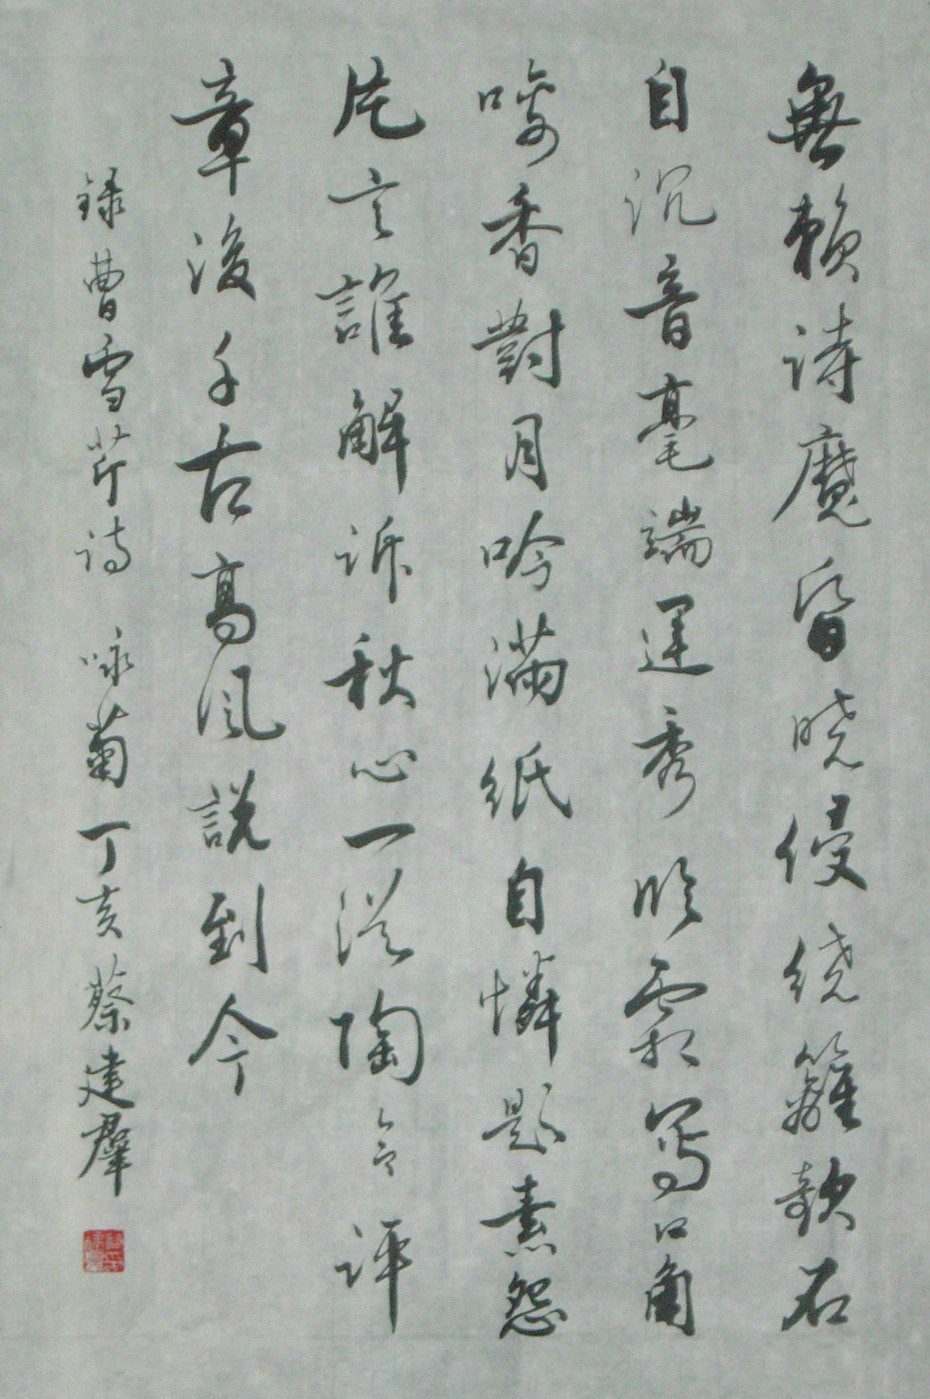 無賴詩魔昏曉侵繞籬欹石
自沉音毫端運秀臨霜寫口角
噙香對月吟滿紙自憐題素怨
片言誰解訴秋心一從陶令評
章後千古高風說到今
録曹雪芹詩 咏菊 丁亥 蔡建羣